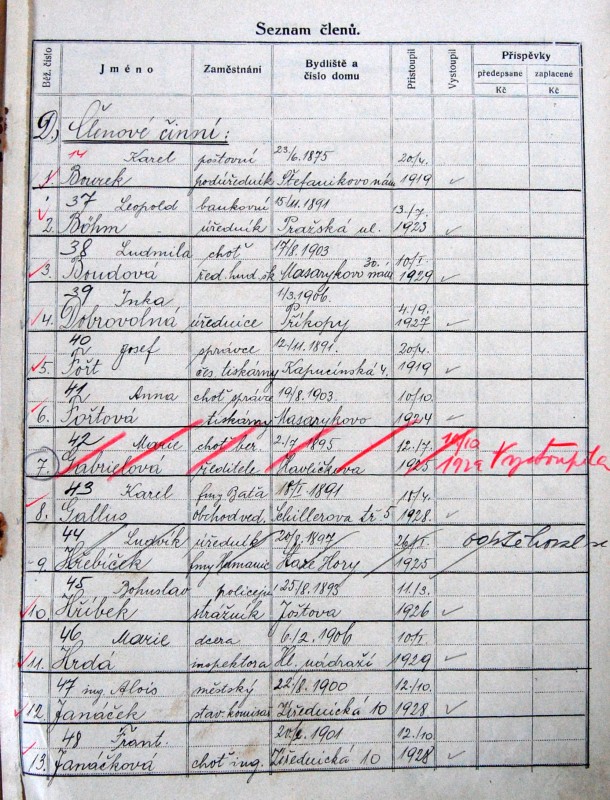 Seznam členů.
Běž. číslo
Jméno
Zaměstnání
Bydliště a
číslo domu
Přistoupil
Vystoupil
Příspěvky
předepsané
zaplacené
Kč
Kč
D, Členové činní:
14 Karel poštovní 23/6. 1875 20/4.
1. Bourek podúředník Štefanikovo nám 1919
37 Leopold bankovní 15/11. 1891 13./7.
2. Böhm úředník Pražská ul. 1923
38 Ludmila choť 17/8. 1903 10/I.
3. Boudová řed. hud. šk Masarykovo nám 30. 1929
39 Inka 1/3. 1906. 4./9.
4. Dobrovolná úřednice Příkopy 1927
40 Josef správce 12./11. 1891. 20/4.
5. Fořt čes. tiskárny Kapucínská 4. 1919
41 Anna choť správce 19/8. 1903. 10/10.
6. Fořtová tiskárny Masarykovo 1924
42 Marie choť ber. 2./7. 1895 12./7.
7. Gabrielová ředitele Havlíčkova 1925 1929 Vystoupila
43 Karel fmy Baťa 1891
8. Gallus obchod ved. Schillerova tř 5 1928
44 Ludvík úředník 20/8. 1897 26/I.
9. Hřebíček fmy Hory 1925
45 Bohuslav policejní 25/8. 1893 11./3.
10. Hříbek strážník Joštova 1926
46 Marie dcera 6./2. 1906 10/I.
11. Hrdá inspektora Hl. nádraží 1929
47 ing Alois městský 22/8. 1900 12./10.
12. Janáček stav. komisař Úřednická 10 1928
48 Frant. 1901 12./10.
13. Janáčková choť ing. Úřednická 10 1928